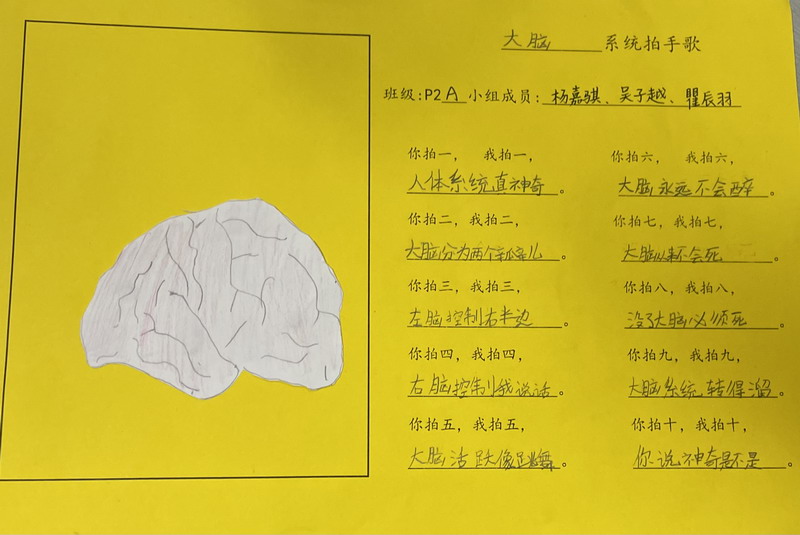 大脑 系统拍手歌
班级:P2A 小组成员:杨嘉骐、吴子越、瞿辰羽
你拍一,我拍一,
人体系统真神奇。
你拍二,我拍二,
大脑分为两个瓣儿。
你拍三,我拍三,
左脑控制右半边。
你拍四,我拍四,
右脑控制我说话。
你拍五,我拍五,
大脑活跃像跳舞。
你拍六,我拍六,
大脑永远不会醉。
你拍七,我拍七,
大脑从来不会死。
你拍八,我拍八,
没了大脑必须死。
你拍九,我拍九,
大脑系统转得溜。
你拍十,我拍十,
你说神奇是不是。